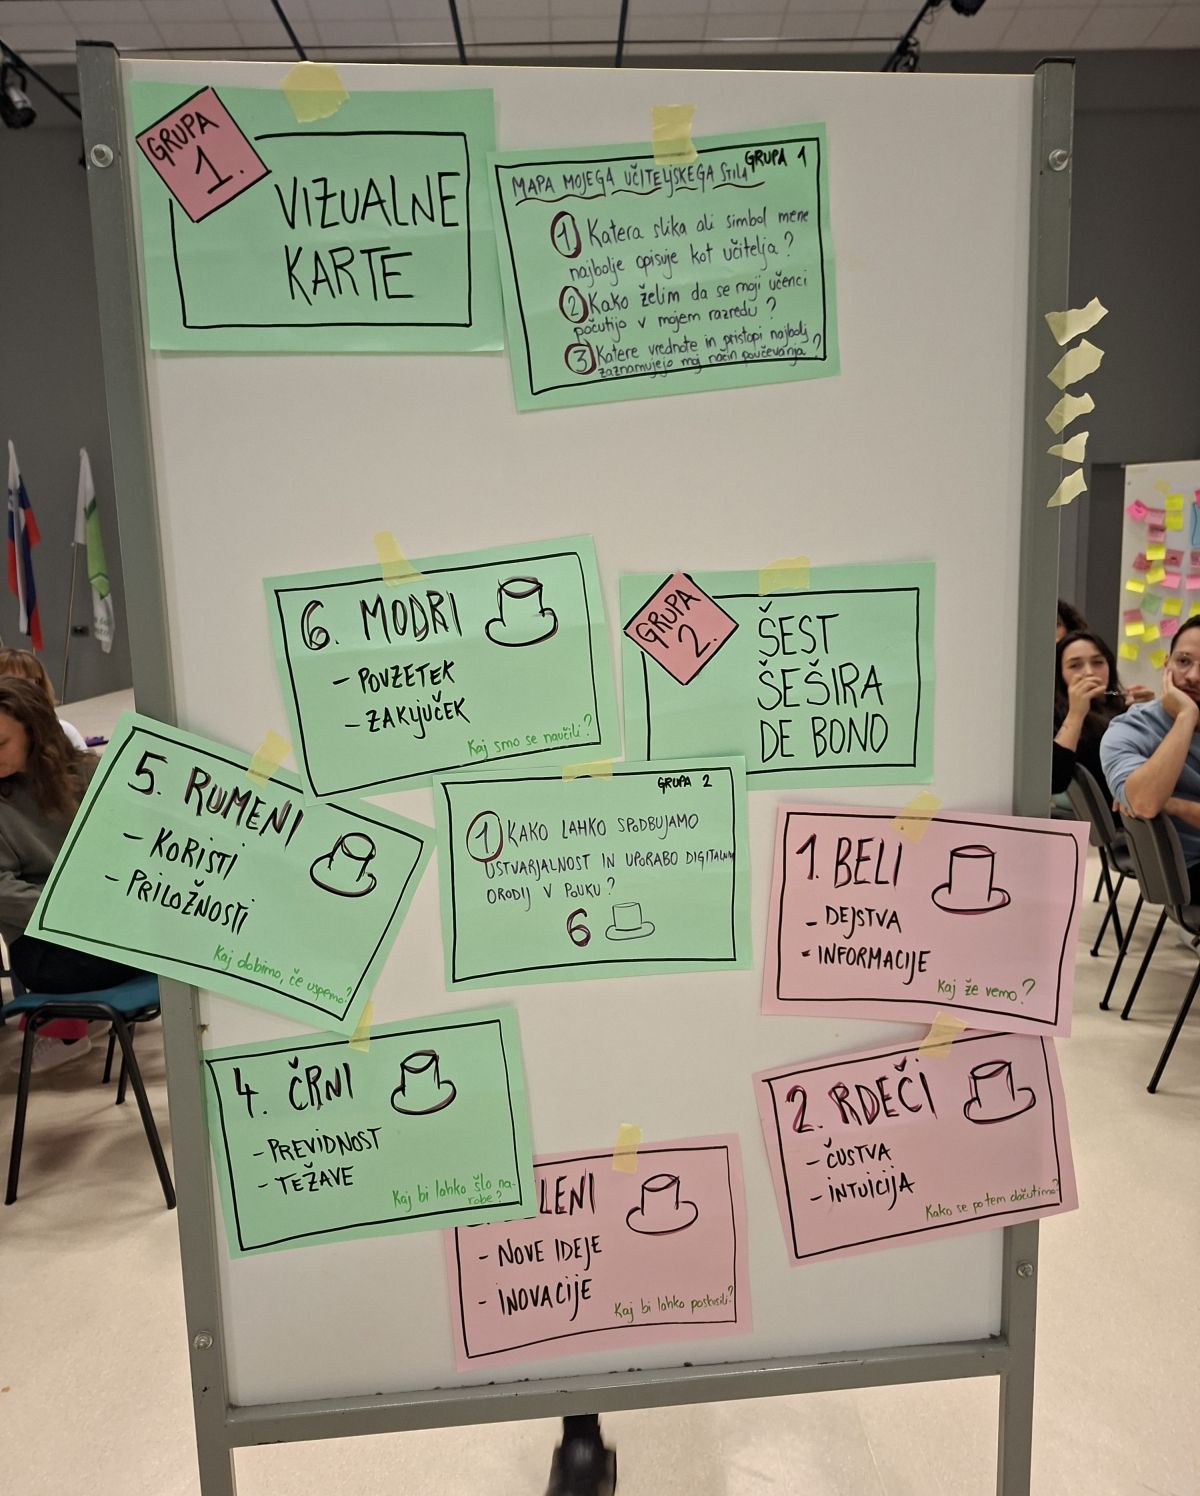 GRUPA
1.
VIZUALNE
KARTE
GRUPA 1
MAPA MOJEGA UČITELJSKEGA STILA
1 Katera slika ali simbol mene
najbolje opisuje kot učitelja?
2 Kako želim da se moji učenci
počutijo v mojem razredu?
3 Katere vrednote in pristopi najbolj
zaznamujejo moj način poučevanja?
6. MODRI
- POVZETEK
- ZAKLJUČEK
Kaj smo se naučili?
GRUPA
2.
ŠEST
ŠEŠIRA
DE BONO
5. RUMENI
- KORISTI
- PRILOŽNOSTI
Kaj dobimo, če uspemo?
GRUPA 2
1 KAKO LAHKO SPODBUJAMO
USTVARJALNOST IN UPORABO DIGITALNIH
ORODIJ V POUKU?
6
1. BELI
- DEJSTVA
- INFORMACIJE
Kaj že vemo?
4. ČRNI
- PREVIDNOST
- TEŽAVE
Kaj bi lahko šlo na-
robe?
2. RDEČI
- ČUSTVA
- INTUICIJA
Kako se po tem
LENI
- NOVE IDEJE
- INOVACIJE
Kaj bi lahko